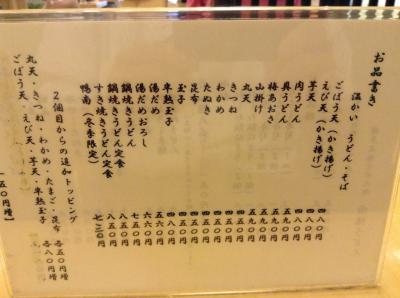 お品書き
温かい うどん・そば
ごぼう天（かき揚げ） 四八〇円
えび天（かき揚げ） 四八〇円
芋天 四八〇円
肉うどん 五九〇円
具うどん 五九〇円
梅あおさ 五九〇円
山掛け 五九〇円
丸天 四五〇円
きつね 四五〇円
わかめ 四五〇円
たぬき 四五〇円
昆布 四五〇円
玉子 四五〇円
半熟玉子 四八〇円
湯だめ 五六〇円
湯だめおろし 六六〇円
鍋焼きうどん 七五〇円
鍋焼きうどん定食 八五〇円
すき焼きうどん定食 八五〇円
鴨南（冬季限定） 七二〇円
２個目からの追加トッピング
丸天・きつね・わかめ・たまご・昆布 各五〇円増
ごぼう天・えび天・芋天・半熟玉子 各八〇円増
五〇円増】